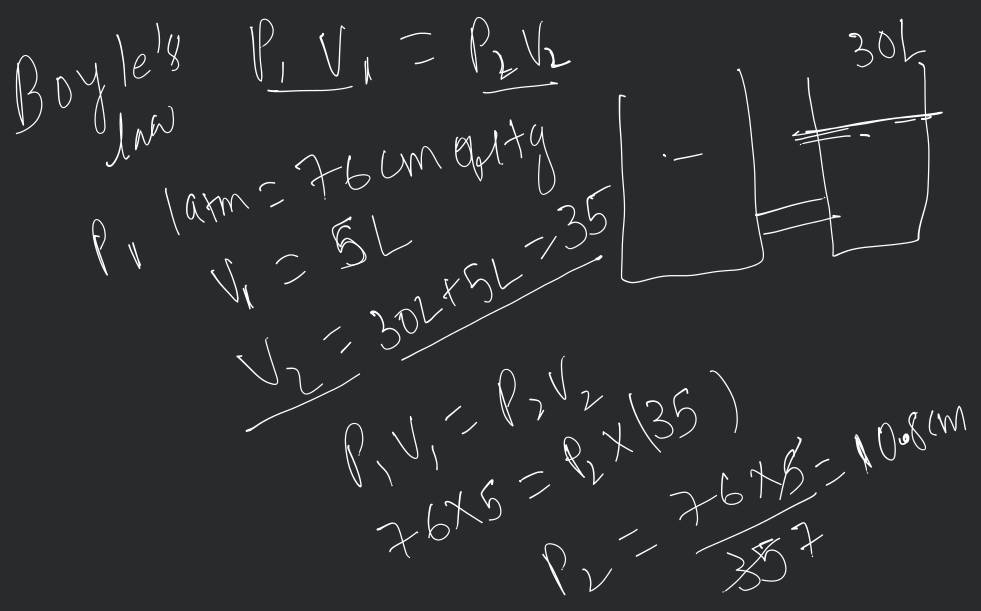 Boyle's law
P₁ V₁ = P₂ V₂
30L
P₁ 1atm = 76 cm of Hg
V₁ = 5L
V₂ = 30L+5L = 35
P₁V₁ = P₂V₂
76×5 = P₂×(35)
P₂ = 76×5/35 7 = 10.8cm